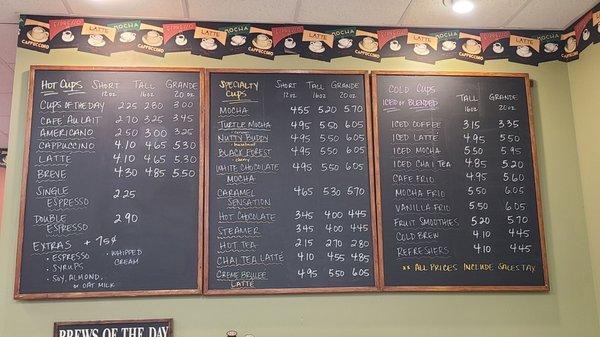 MOCHA ESPRESSO LATTE MOCHA ESPRESSO LATTE MOCHA ESPRESSO LATTE MOCHA
CAPPUCCINO CAPPUCCINO CAPPUCCINO
HOT CUPS SHORT TALL GRANDE
12 oz 16 oz 20 oz
CUPS OF THE DAY 2.25 2.80 3.00
CAFE AU LAIT 2.70 3.25 3.45
AMERICANO 2.50 3.00 3.25
CAPPUCCINO 4.10 4.65 5.30
LATTE 4.10 4.65 5.30
BREVE 4.30 4.85 5.50
SINGLE
ESPRESSO 2.25
DOUBLE
ESPRESSO 2.90
EXTRAS + 75¢
• ESPRESSO • WHIPPED
• SYRUPS CREAM
• SOY, ALMOND,
OR OAT MILK
SPECIALTY SHORT TALL GRANDE
CUPS 12oz 16oz 20oz
MOCHA 4.55 5.20 5.70
TURTLE MOCHA 4.95 5.50 6.05
NUTTY BUDDY 4.95 5.50 6.05
hazelnut
BLACK FOREST 4.95 5.50 6.05
cherry
WHITE CHOCOLATE 4.95 5.50 6.05
MOCHA
CARAMEL 4.65 5.30 5.70
SENSATION
HOT CHOCOLATE 3.45 4.00 4.45
STEAMER 3.45 4.00 4.45
HOT TEA 2.15 2.70 2.80
CHAI TEA LATTE 4.10 4.55 4.85
CREME BRULEE 4.95 5.50 6.05
LATTE
COLD CUPS
ICED OR BLENDED TALL GRANDE
16oz 20oz
ICED COFFEE 3.15 3.35
ICED LATTE 4.95 5.50
ICED MOCHA 5.50 5.95
ICED CHAI TEA 4.85 5.20
CAFE FRIO 4.95 5.60
MOCHA FRIO 5.50 6.05
VANILLA FRIO 5.50 6.05
FRUIT SMOOTHIES 5.20 5.70
COLD BREW 4.10 4.45
REFRESHERS 4.10 4.45
** ALL PRICES INCLUDE SALES TAX
BREWS OF THE DAY